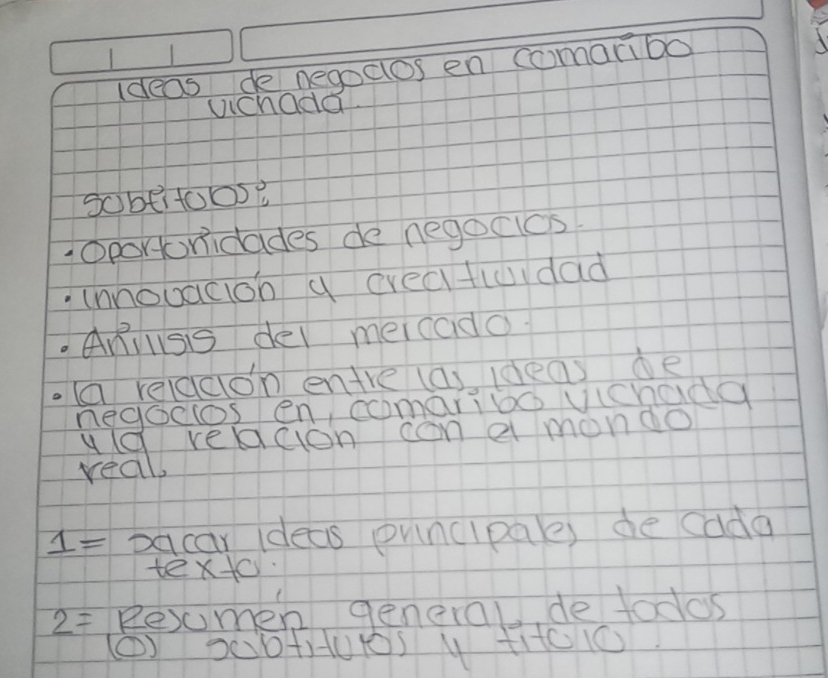 Ideas de negocios en comaribo
vichada.
sobtitolos:
• Oportonidades de negocios.
• innovación y creatividad
• Anilisis del mercado.
• la relación entre las ideas de
negocios en comaribo vichada
y la relacion con el mondo
real.
1= sacar ideas principales de cada
texto.
2= Resumen general de todos
los subtitulos y titolo.